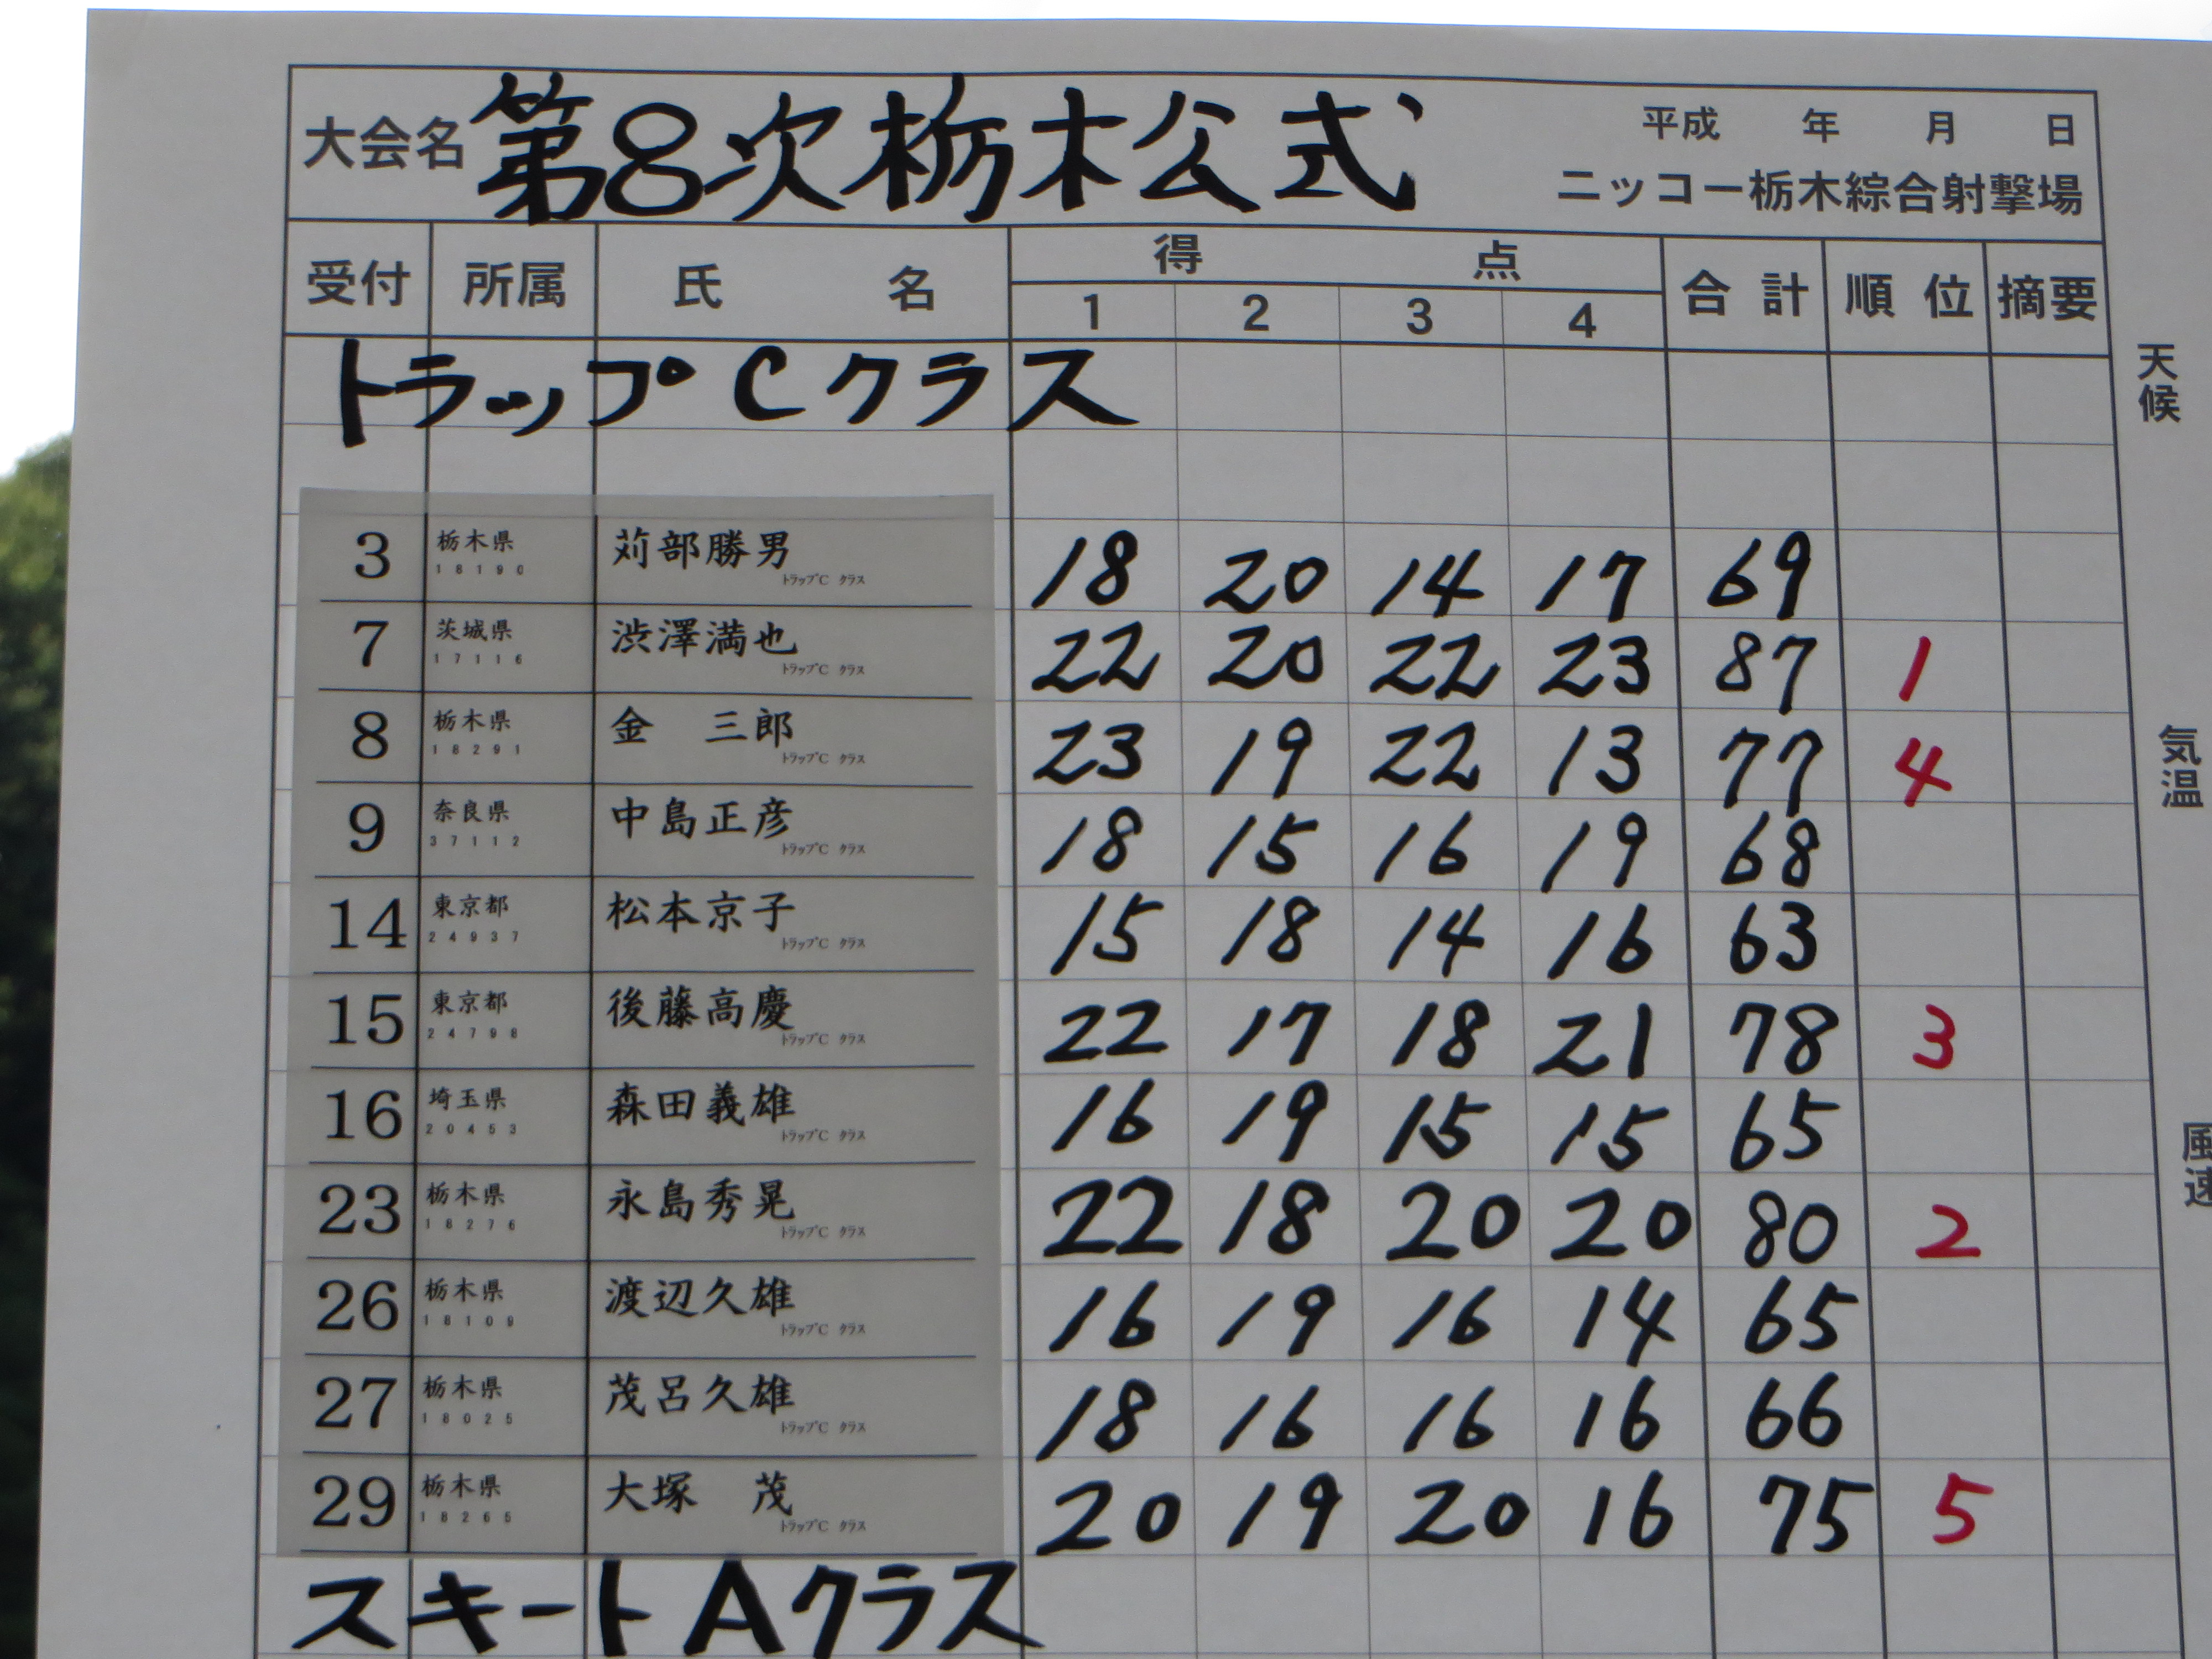 大会名 第8次栃木公式 平成 年 月 日
ニッコー栃木綜合射撃場
受付 所属 氏 名 得 点 合 計 順 位 摘要
1 2 3 4
トラップCクラス
3 栃木県 18190 苅部勝男 トラップC クラス 18 20 14 17 69
7 茨城県 17116 渋澤満也 トラップC クラス 22 20 22 23 87 1
8 栃木県 18291 金 三郎 トラップC クラス 23 19 22 13 77 4
9 奈良県 37112 中島正彦 トラップC クラス 18 15 16 19 68
14 東京都 24937 松本京子 トラップC クラス 15 18 14 16 63
15 東京都 24798 後藤高慶 トラップC クラス 22 17 18 21 78 3
16 埼玉県 20453 森田義雄 トラップC クラス 16 19 15 15 65
23 栃木県 18276 永島秀晃 トラップC クラス 22 18 20 20 80 2
26 栃木県 18109 渡辺久雄 トラップC クラス 16 19 16 14 65
27 栃木県 18025 茂呂久雄 トラップC クラス 18 16 16 16 66
29 栃木県 18265 大塚 茂 トラップC クラス 20 19 20 16 75 5
スキートAクラス
天候
気温
風速